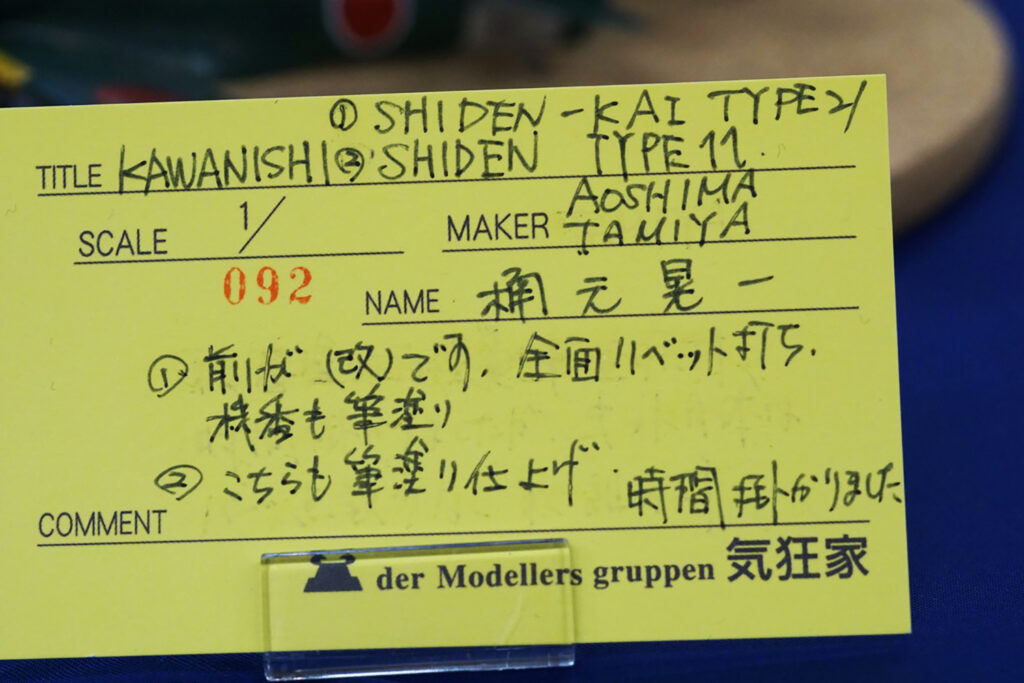 ① SHIDEN-KAI TYPE21
TITLE KAWANISHI ② SHIDEN TYPE11.
SCALE 1/
MAKER AOSHIMA TAMIYA
092
NAME 桶元晃一
① 前が(改)です。全面リベット打ち.
機番も筆塗り
② こちらも筆塗り仕上げ. 時間掛かりました
COMMENT
der Modellers gruppen 気狂家